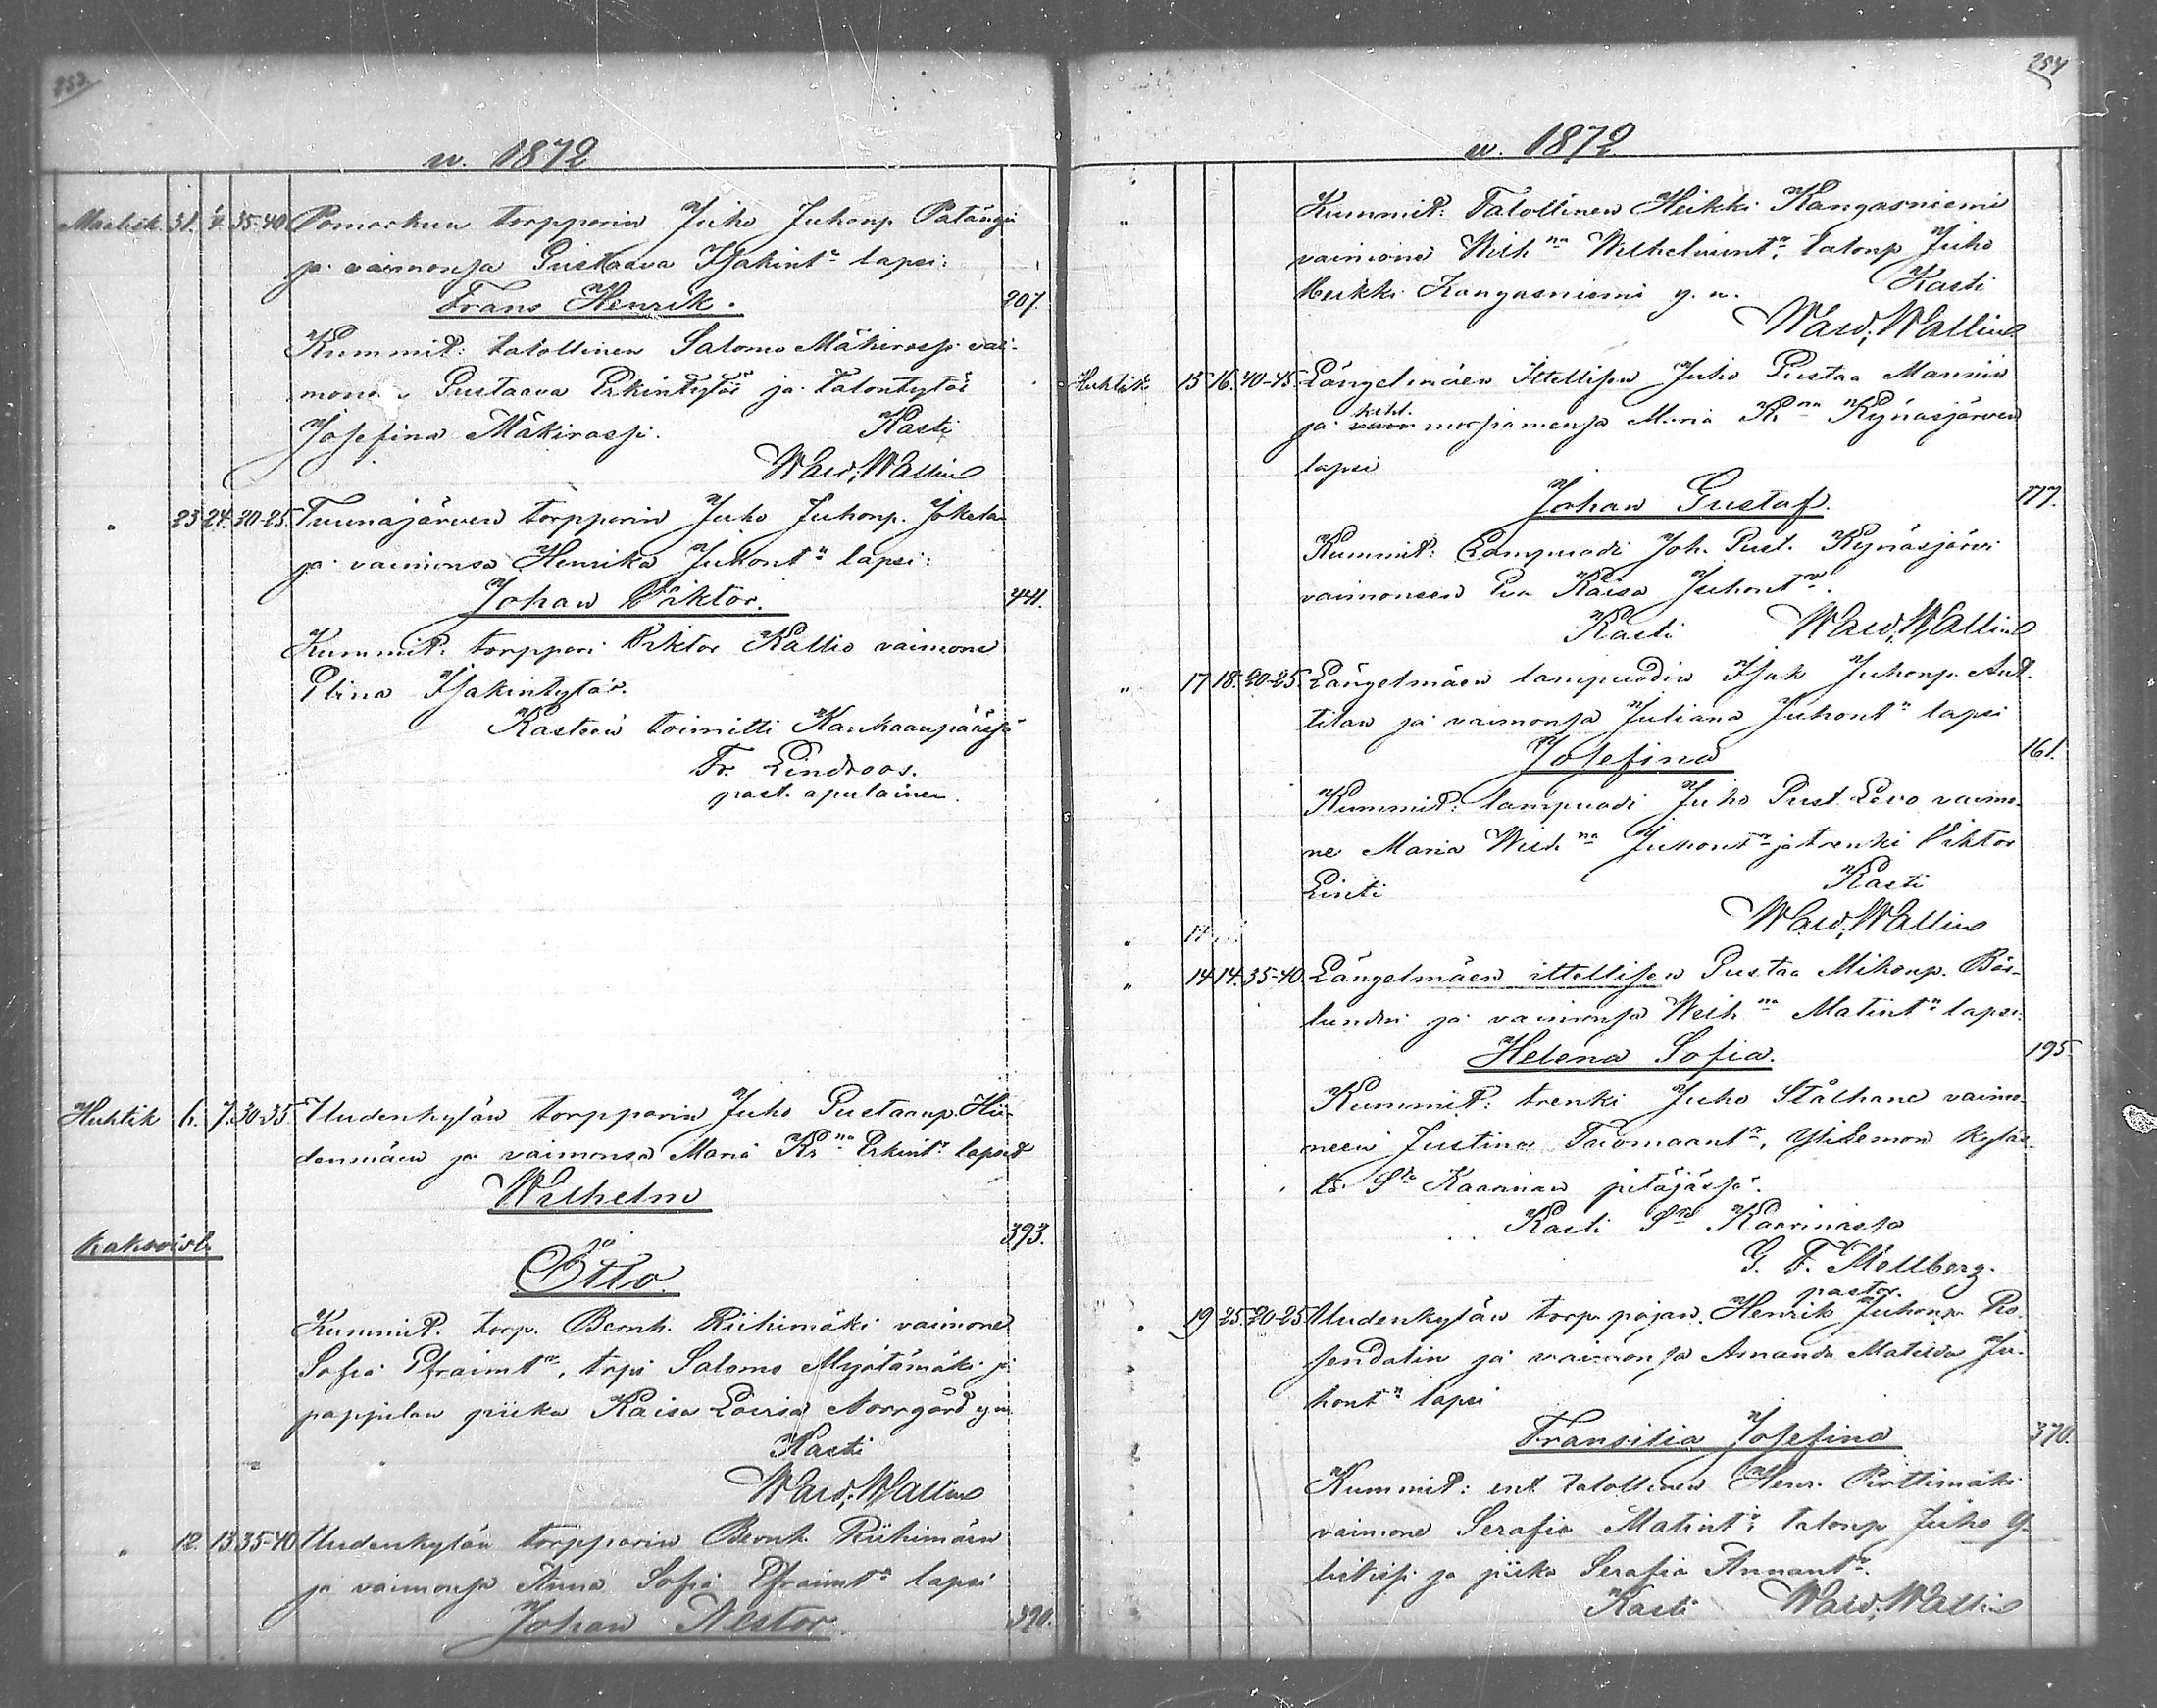 253.
w. 1872
Maalisk. 31. 35-40 Pomarkun torpparin Juho Juhonp.
ja vaimonsa Gustaava Isakintr lapsi:
Frans Henrik. 207.
Kummit: talollinen Salomo Mäkirassi vai-
monsa Gustaava Erkintytär ja talontytär
Josefina Mäkirassi. Kasti
Wald. Wallin
" 23 24. 20-25. Tuunajärven torpparin Juho Juhonp. Jokela
ja vaimonsa Henrika Juhontr lapsi:
Johan Viktor. 441.
Kummit: torppari Viktor Kallio vaimone
Elina Isakintytär.
Kasteen toimitti Kankaanpäässä
Fr. Lindroos.
past. apulainen.
Huhtik 6. 7. 30-35. Uudenkylän torpparin Juho Gustaanp. Hii-
denmäen ja vaimonsa Maria Krna Erkintr lapset
Wilhelm
kaksoist. ja 393.
Otto.
Kummit. torp. Bernh. Riihimäki vaimone
Sofia Efraimtr, trpi Salomo Myötämäki ja
pappilan piika Kaisa Lovisa Norrgård y.m.
Kasti
Wald. Wallin
" 12. 13. 35-40 Uudenkylän torpparin Bernh. Riihimäen
ja vaimonsa Anna Sofia Efraimtr lapsi
Johan Nestor. 390.
254
w. 1872
" Kummit: Talollinen Heikki Kangasniemi
vaimone Wilhna Wilhelmintr, talonp Juho
Heikki Kangasniemi y. m. Kasti
Wald. Wallin
Huhtik 15 16. 40-45. Längelmäen Itellisen Juho Gustaa Mannin
ja kihl. morsiamensa Maria Krna Kynäsjärven
lapsi
Johan Gustaf. 177.
Kummit: Lampuodi Joh. Gust. Kynäsjärvi
vaimoneen Eva Kaisa Juhontr.
Kasti Wald. Wallin
" 17 18. 20-25. Längelmäen lampuodin Isak Juhonp. Ant-
tilan ja vaimonsa Juliana Juhontr lapsi
Josefina 161.
Kummit: lampuodi Juho Gust. Levo vaimo-
ne Maria Wilhna Juhontr ja trenki Viktor
Linti Kasti
Wald. Wallin
" 14
" 14 14. 35-40. Längelmäen itellisen Gustaa Mikonp. Bös-
lundin ja vaimonsa Wilhna Matintr lapsi:
Helena Sofia. 195
Kummit: trenki Juho Stålhane vaimo-
neen Justina Tuomaantr, Ylilemon kyläs-
tä Sta Kaarinan pitäjässä.
Kasti Sta Kaarinassa
G. F. Mellberg.
pastor.
" 19 25. 20-25 Uudenkylän torp. pojan Henrik Juhonp. Ro-
sendalin ja vaimonsa Amanda Matilda Ju-
hontr lapsi
Fransilia Josefina 370.
Kummit: ent talollinen Henr. Perttimäki
vaimone Serafia Matintr, talonp Juho
ja piika Serafia Annantr.
Kasti Wald. Wallin